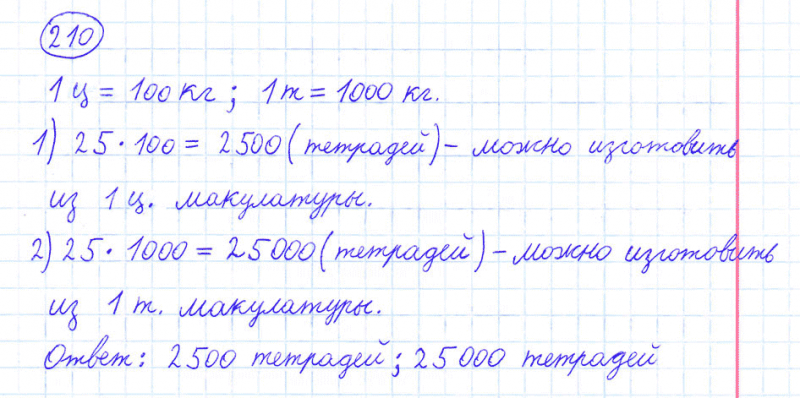 210
1 ц = 100 кг ; 1 т = 1000 кг.
1) 25 · 100 = 2500 (тетрадей) - можно изготовить
из 1 ц. макулатуры.
2) 25 · 1000 = 25000 (тетрадей) - можно изготовить
из 1 т. макулатуры.
Ответ: 2500 тетрадей; 25000 тетрадей